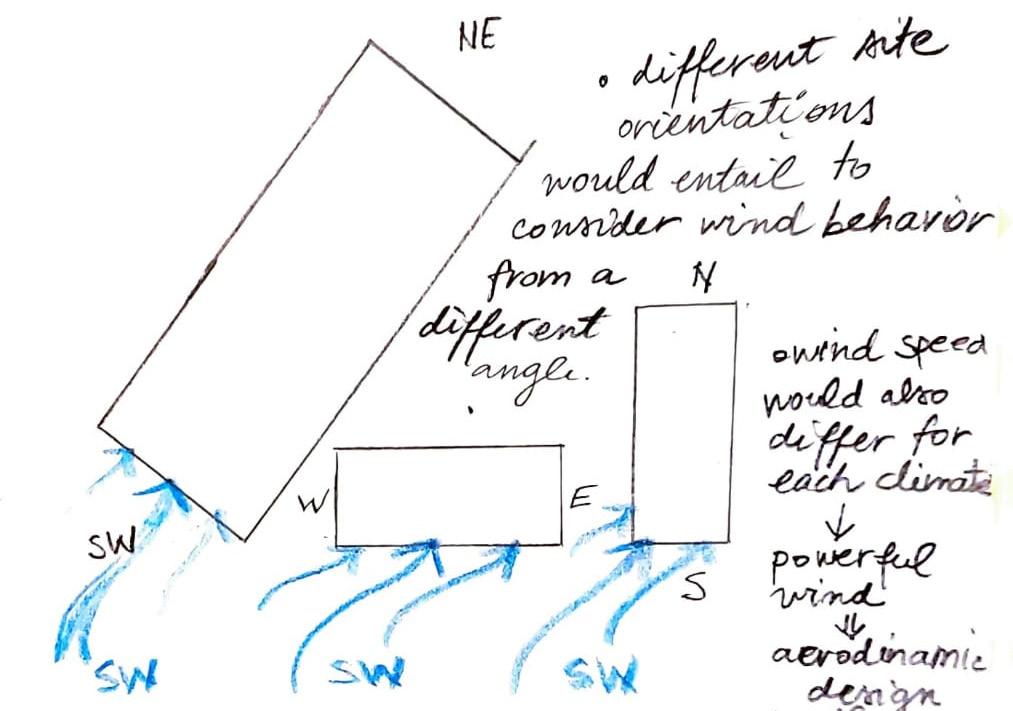 NE
• different site
orientations
would entail to
consider wind behavior
from a
different
angle.
N
W
E
S
SW
SW
SW
SW
• wind speed
would also
differ for
each climate
↓
powerful
wind
⇓
aerodinamic
design